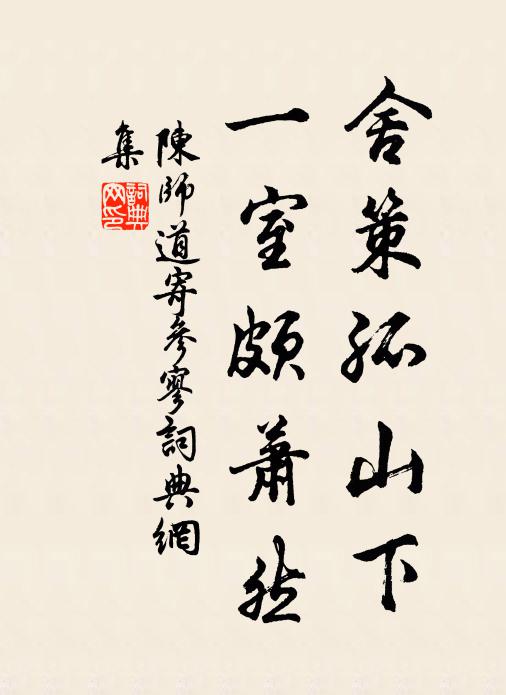 舍策孤山下
一室頗蕭然
陳師道寄參寥詞典網
集
詞典
网印